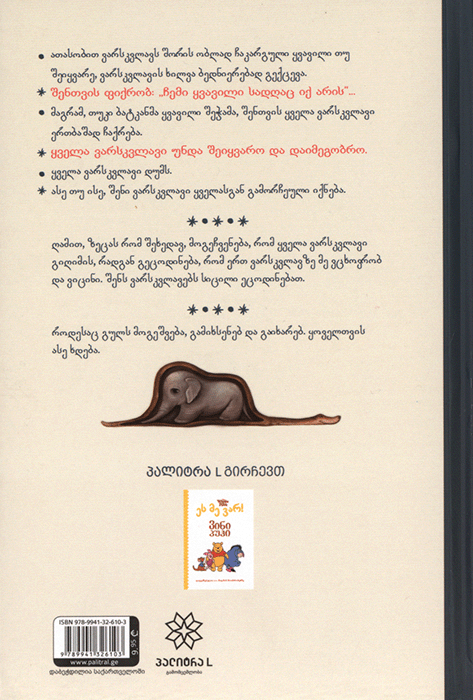 • ათასობით ვარსკვლავს შორის ობლად ჩაკარგული ყვავილი თუ
შეიყვარე, ვარსკვლავის ხილვა ბედნიერებად გექცევა.
* შენთვის ფიქრობ: „ჩემი ყვავილი სადღაც იქ არის“...
• მაგრამ, თუკი ბატკანმა ყვავილი შეჭამა, შენთვის ყველა ვარსკვლავი
ერთბაშად ჩაქრება.
* ყველა ვარსკვლავი უნდა შეიყვარო და დაიმეგობრო.
• ყველა ვარსკვლავი დუმს.
* ასე თუ ისე, შენი ვარსკვლავი ყველასგან გამორჩეული იქნება.
* • * • *
ღამით, ზეცას რომ შეხედავ, მოგეჩვენება, რომ ყველა ვარსკვლავი
გიღიმის, რადგან გეცოდინება, რომ ერთ ვარსკვლავზე მე ვცხოვრობ
და ვიცინი. შენს ვარსკვლავებს სიცილი ეცოდინებათ.
* • * • *
როდესაც გულს მოგეშვება, გამიხსენებ და გაიხარებ. ყოველთვის
ასე ხდება.
პალიტრა L გირჩევთ
ეს მე ვარ!
ვინი
პუჰი
ISBN 978-9941-32-610-3
9 789941 326103
9,95 ₾
www.palitral.ge
დაბეჭდილია საქართველოში
პალიტრა L
გამომცემლობა